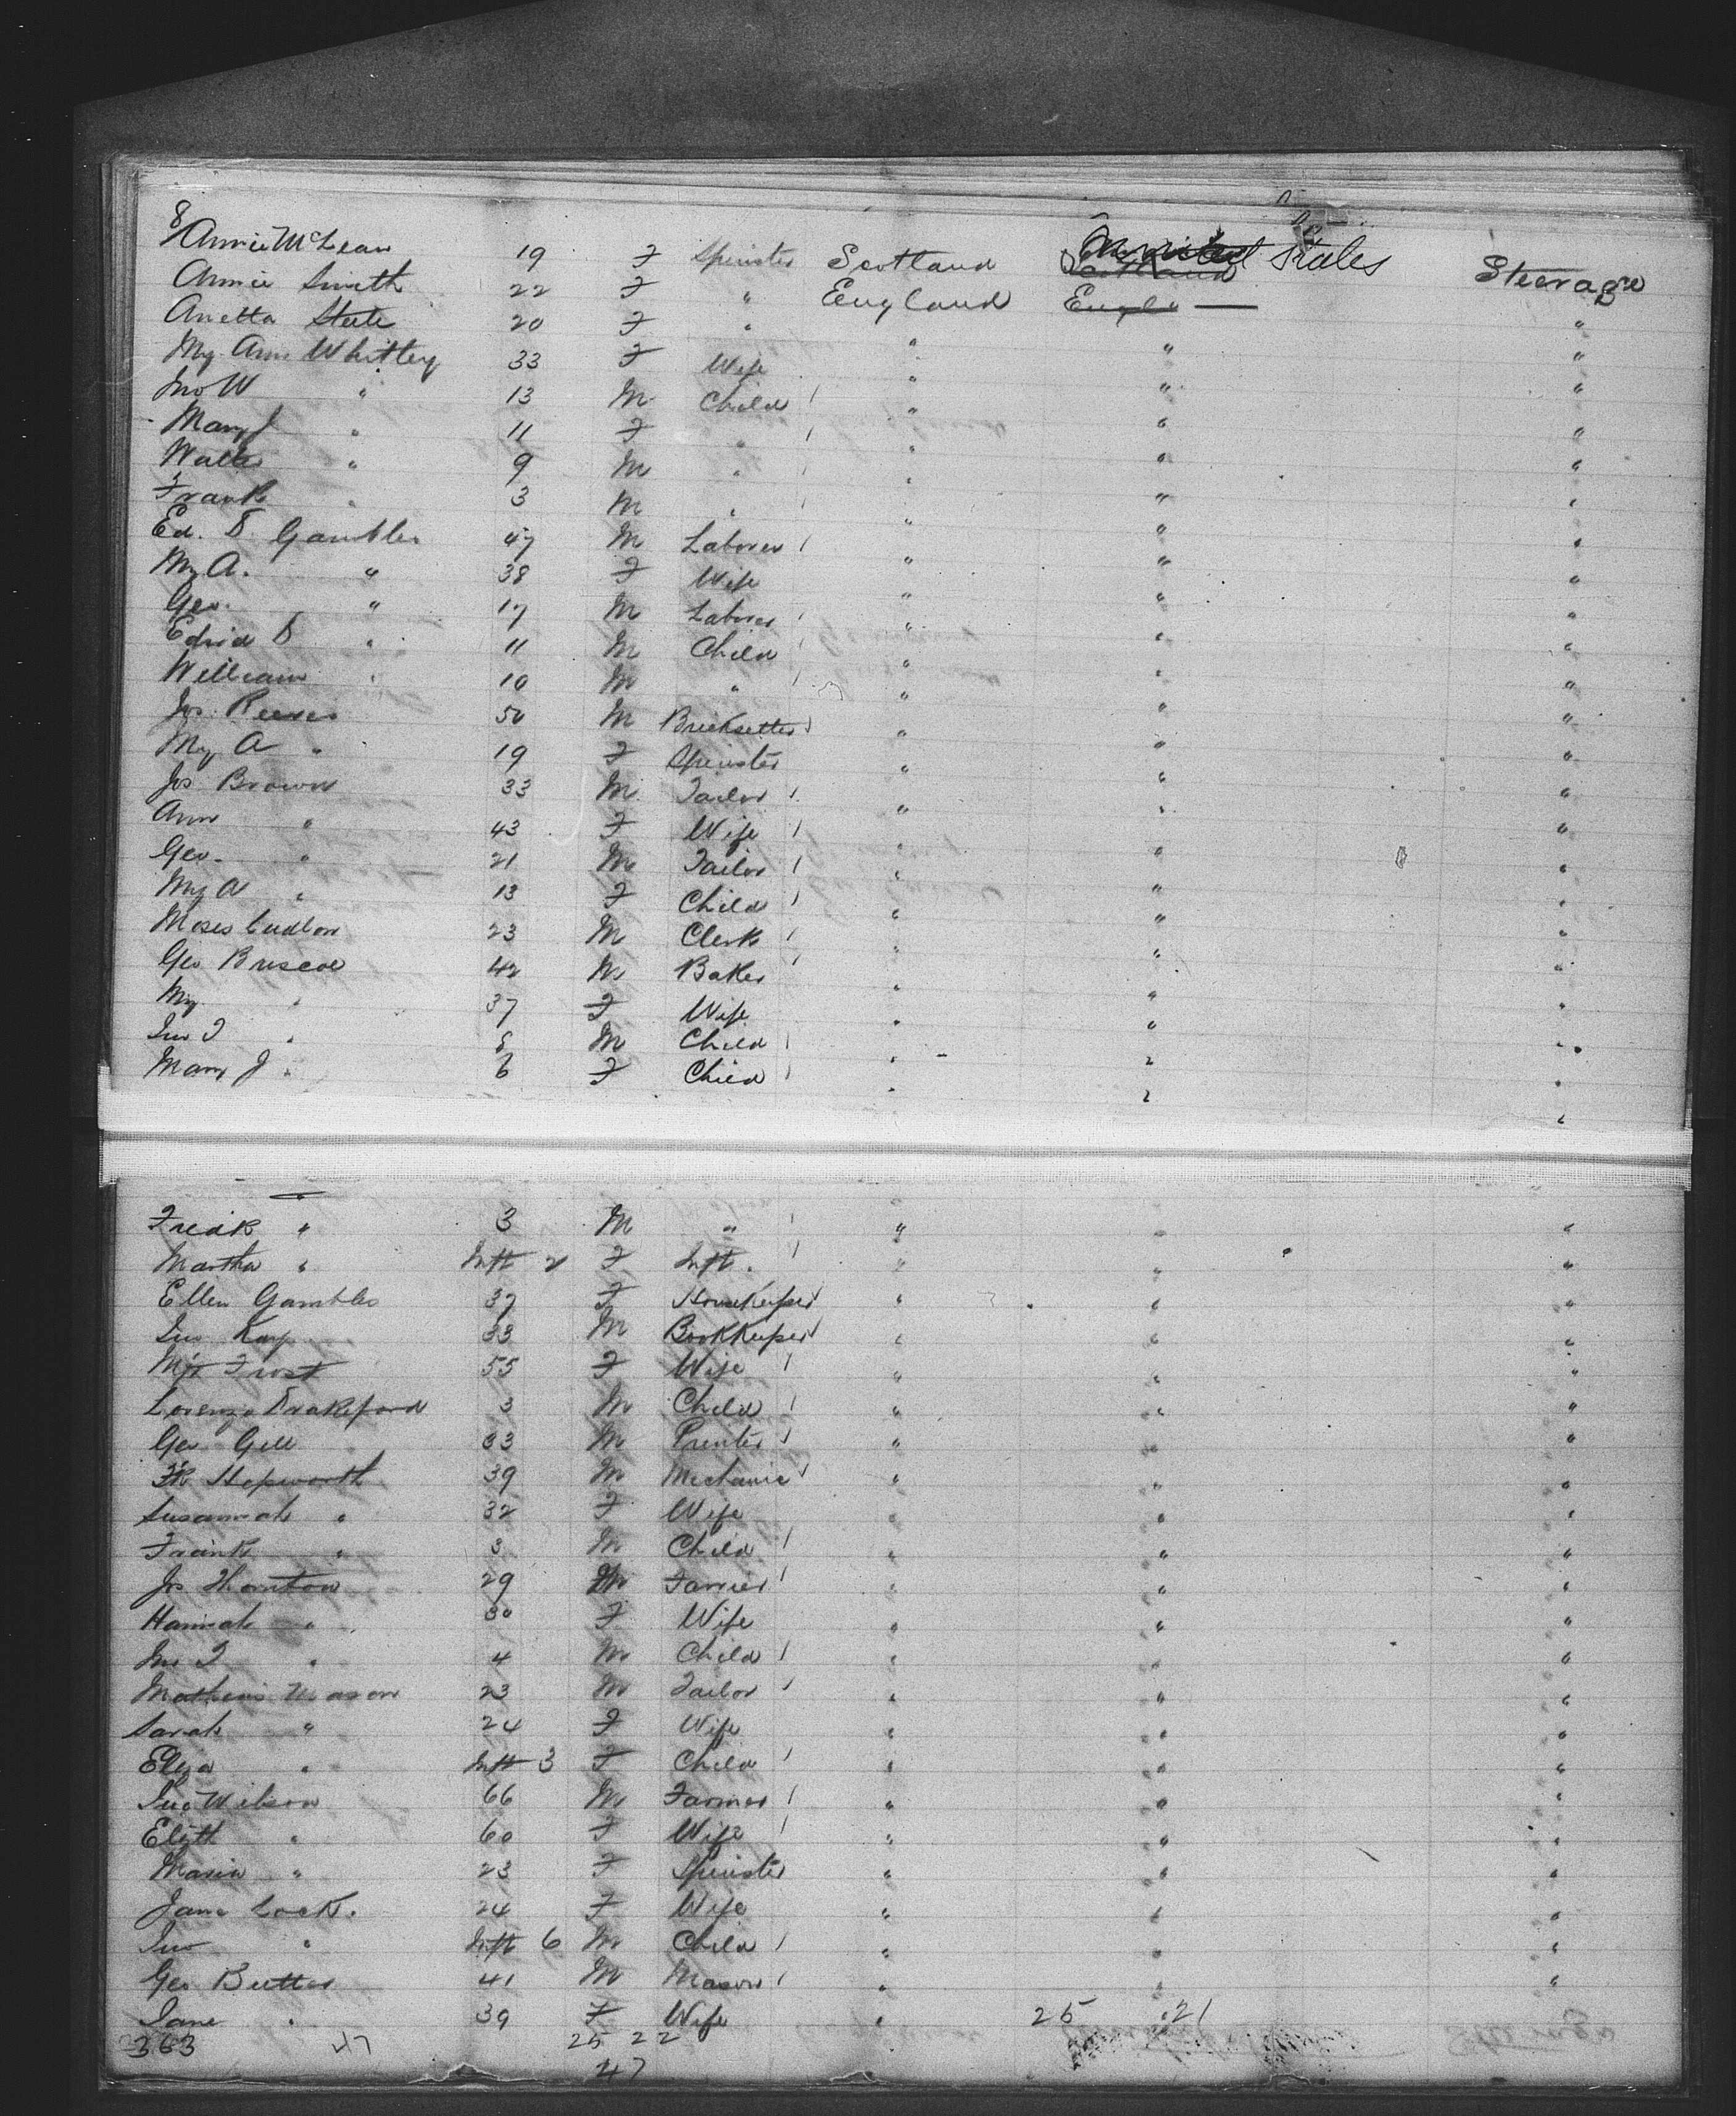 8
Annie McLean 19 F Spinster Scotland United States Steerage
Annie Smith 22 F " England Engl "
Anetta Steele 20 F " " " "
My Ann Whitley 33 F Wife " " "
Jno W " 13 M Child " " "
Mary J " 11 F " " " "
Walter " 9 M " " " "
Frank " 3 M " " " "
Ed. D. Gambles 47 M Laborer " " "
My A. " 38 F Wife " " "
Geo. " 17 M Laborer " " "
Edwd D " 11 M Child " " "
William " 10 M " " " "
Jos Reeves 50 M Bricksetter " " "
My A " 19 F Spinster " " "
Jos Brown 33 M Tailor " " "
Ann " 43 F Wife " " "
Geo. " 21 M Tailor " " "
My A " 13 F Child " " "
Moses Cudlow 23 M Clerk " " "
Geo Briscoe 42 M Baker " " "
My " 37 F Wife " " "
Jno T " 8 M Child " " "
Mary J " 6 F Child " " "
Fredk " 3 M " " " "
Martha " Inft 2 F Inft. " " "
Ellen Gambles 37 F Housekeeper " " "
Jno Kay 33 M Bookkeeper " " "
Mgt Frost 55 F Wife " " "
Lorenzo Drakeford 3 M Child " " "
Geo Gill 33 M Printer " " "
Fk Hepworth 39 M Mechanic " " "
Susannah " 32 F Wife " " "
Frank " 3 M Child " " "
Jos Thornton 29 M Farrier " " "
Hannah " 30 F Wife " " "
Jno T " 4 M Child " " "
Mathew Mason 23 M Tailor " " "
Sarah " 24 F Wife " " "
Eliza " Inft 3 F Child " " "
Jno Wilson 66 M Farmer " " "
Elizth " 60 F Wife " " "
Maria " 23 F Spinster " " "
Jane Cock. 24 F Wife " " "
Jno " Inft 6 M Child " " "
Geo Butter 41 M Mason " " "
Jane " 39 F Wife " 25 21
363 47 25 22
47